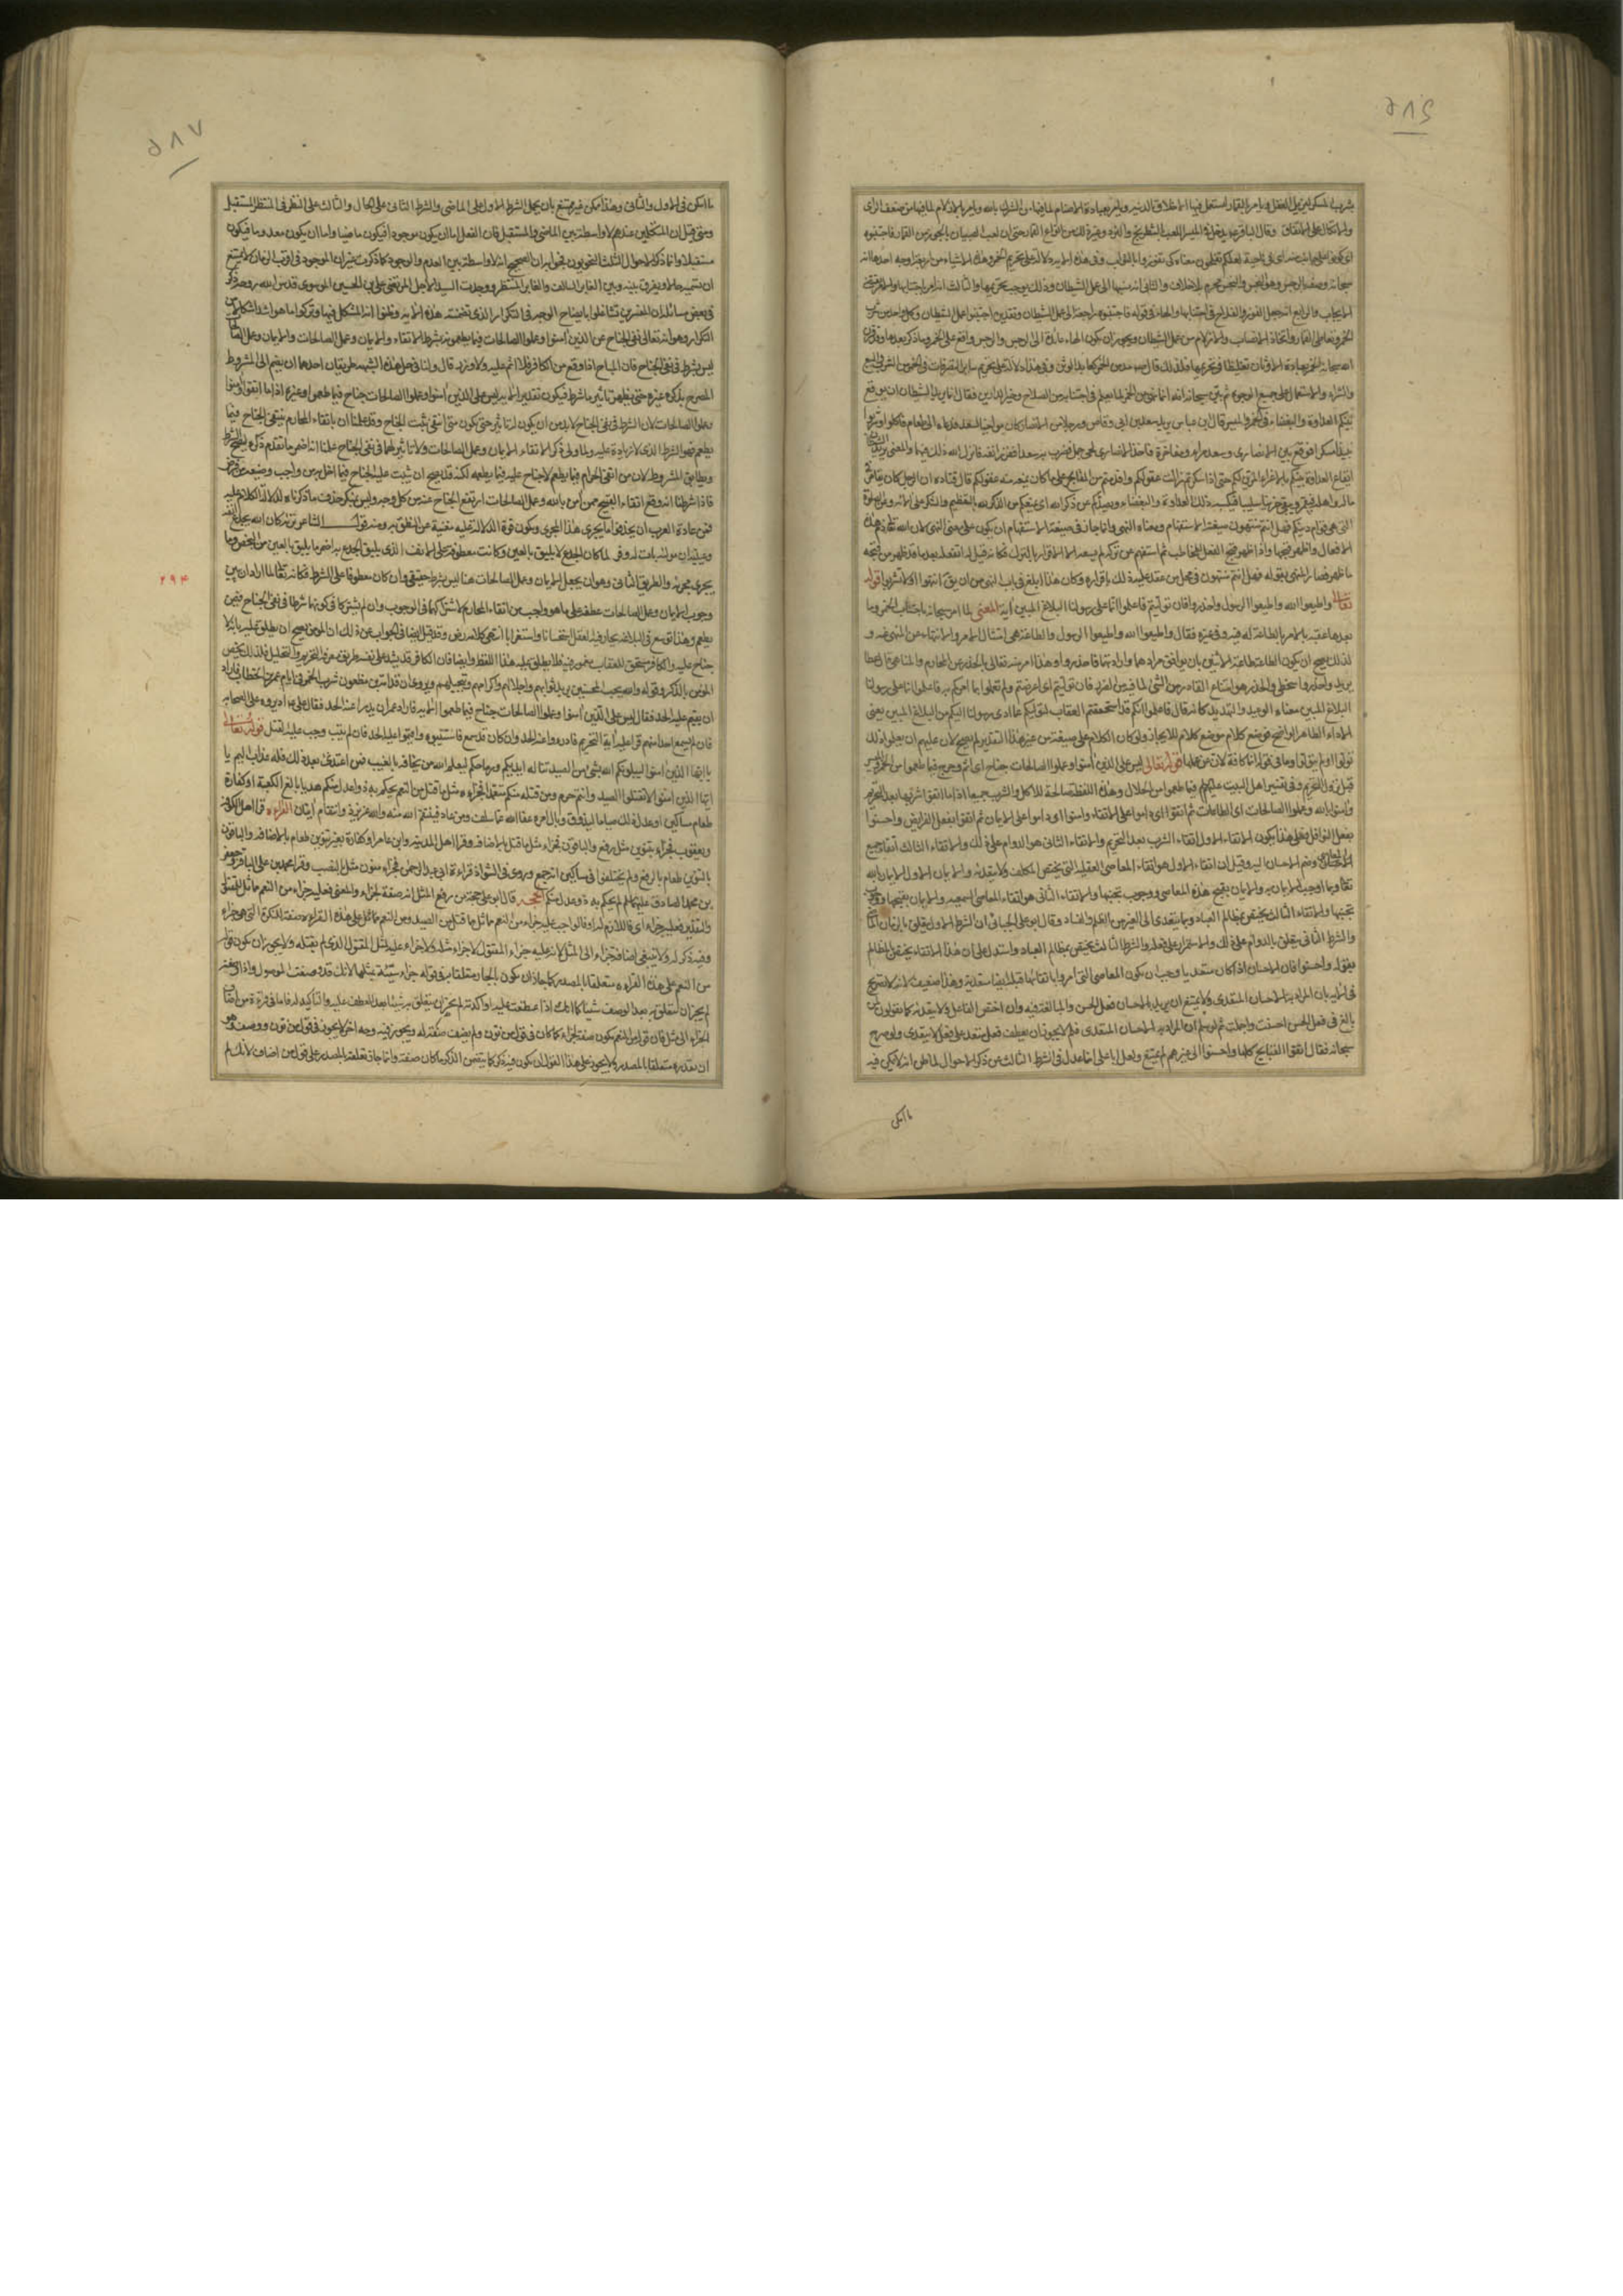 ٥٨٦
بشرب المسكر المزيل للعقل ويأمر بالقمار ليستعمل فيها الاخلاق الدنية ويأمر بعبادة الاصنام لما فيها من الشرك بالله ويأمر بالازلام لما فيها من ضعف الرأى
والاتكال على الاتفاق وقال الباقر يدخل فى الميسر اللعب بالشطرنج والنرد وغير ذلك من انواع القمار حتى ان لعب الصبيان بالجوز من القمار فاجتنبوه
اى كونوا على جانب منه اى فى ناحية لعلكم تفلحون معناه لكى تفوزوا بالثواب وفى هذه الاية دلالة على تحريم الخمر وهذه الاشياء من اربعة اوجه احدها انه
سبحانه وصفها بالرجس وهو النجس والنجس محرم بلا خلاف والثانى انه نسبها الى عمل الشيطان وذلك يوجب تحريمها والثالث انه امر باجتنابها والامر يقتضى
الايجاب والرابع انه جعل الفوز والفلاح فى اجتنابها والهاء فى قوله فاجتنبوه راجعة الى عمل الشيطان وتقديره اجتنبوا عمل الشيطان وكل واحد من شرب
الخمر وتعاطى القمار واتخاذ الانصاب والازلام من عمل الشيطان ويجوز ان يكون الهاء عائدة الى الرجس والرجس واقع على الخمر وما ذكر بعدها وقد قرن
الله سبحانه الخمر بعبادة الاوثان تغليظا فى تحريمها ولذلك قال مدمن الخمر كعابد الوثن وفى هذا دلالة على تحريم سائر التصرفات فى الخمر من الشرب والبيع
والشراء والاستعمال على جميع الوجوه ثم بين سبحانه انه انما نهى عن الخمر لما يعلم فى اجتنابه من الصلاح وخير الدارين فقال انما يريد الشيطان ان يوقع
بينكم العداوة والبغضاء فى الخمر والميسر قال ابن عباس يريد سعد بن ابى وقاص ورجلا من الانصار كان مواخيا لسعد فدعاه الى الطعام فاكلوا وشربوا
نبيذا مسكرا فوقع بين الانصارى وسعد مراء ومفاخرة فاخذ الانصارى لحى جمل فضرب به سعدا ففزر انفه فانزل الله ذلك فيهما والمعنى يريد الشيطان
ايقاع العداوة بينكم بالاغراء المزين لكم حتى اذا سكرتم زالت عقولكم واقدمتم من القبائح على ما كان يمنعه منه عقولكم قال قتادة ان الرجل كان يقامر فى
ماله واهله فيقمر ويبقى حزينا سليبا فيكسبه ذلك العداوة والبغضاء ويصدكم عن ذكر الله اى يمنعكم من الذكر لله بالتعظيم والشكر على الائه وعن الصلوة
التى هى قوام دينكم فهل انتم منتهون صيغته الاستفهام ومعناه النهى وانما جاز فى صيغة الاستفهام ان يكون على معنى النهى لان الله تعالى ذم هذه
الافعال واظهر قبحها واذا ظهر قبح الفعل للمخاطب ثم استفهم عن تركه لم يسعه الا الاقرار بالترك فكانه قيل له اتفعله بعد ما قد ظهر من قبحه
ما ظهر فصار المنتهى بقوله فهل انتم منتهون فى محل من عقد عليه ذلك باقراره وكان هذا ابلغ فى باب النهى من ان يقال انتهوا ولا تشربوا قوله
تعالى واطيعوا الله واطيعوا الرسول واحذروا فان توليتم فاعلموا انما على رسولنا البلاغ المبين اية المعنى لما امر سبحانه باجتناب الخمر وما
بعدها عقبه بالامر بالطاعة له فيه وفى غيره فقال واطيعوا الله واطيعوا الرسول والطاعة هى امتثال الامر والانتهاء عن المنهى عنه و
لذلك يصح ان يكون الطاعة طاعة لاثنين بان يوافق مرادهما وارادتهما واحذروا وهذا امر منه تعالى بالحذر عن المحارم والمناهى قال عطا
يريد واحذروا سخطى والحذر هو امتناع القادر من الشئ لما فيه من الضرر فان توليتم اى اعرضتم ولم تعملوا بما امركم به فاعلموا انما على رسولنا
البلاغ المبين معناه الوعيد والتهديد كانه قال فاعلموا انكم قد استحققتم العقاب لتوليكم عما ادى رسولنا اليكم من البلاغ المبين يعنى
الاداء الظاهر الواضح فوضع كلام موضع كلام للايجاز ولو كان الكلام على صيغته من غير هذا التقدير لم يصح لان عليهم ان يعلموا ذلك
تولوا او لم يتولوا وما فى قوله انما كافة لان عن عملها قوله تعالى ليس على الذين آمنوا وعملوا الصالحات جناح اى اثم وحرج فيما طعموا من الخمر والميسر
قبل نزول التحريم وفى تفسير اهل البيت عليهم السلام فيما طعموا من الحلال وهذه اللفظة صالحة للاكل والشرب جميعا اذا ما اتقوا شربها بعد التحريم
وآمنوا بالله وعملوا الصالحات اى الطاعات ثم اتقوا اى داموا على الاتقاء وآمنوا اى داموا على الايمان ثم اتقوا بفعل الفرايض واحسنوا
بفعل النوافل فعلى هذا يكون الاتقاء الاول اتقاء الشرب بعد التحريم والاتقاء الثانى هو الدوام على ذلك والاتقاء الثالث اتقاء جميع
المعاصى وضم الاحسان اليه وقيل ان الاتقاء الاول هو اتقاء المعاصى العقلية التى يختص المكلف ولا يتعداه والايمان الاول الايمان بالله
تعالى وما اوجب الايمان به والايمان بقبح هذه المعاصى ووجوب تجنبها والاتقاء الثانى هو اتقاء المعاصى السمعية والايمان بقبحها ووجوب
تجنبها والاتقاء الثالث يختص بمظالم العباد وبما يتعدى الى الغير من الظلم والفساد وقال ابو على الجبائى ان الشرط الاول يتعلق بالزمان الماضى
والشرط الثانى يتعلق بالدوام على ذلك والاستمرار على فعله والشرط الثالث يختص بمظالم العباد واستدل على ان هذا الاتقاء يختص بالمظالم
بقوله واحسنوا فان الاحسان اذا كان متعديا وجب ان يكون المعاصى التى امروا باتقائها قبله ايضا متعدية وهذا ضعيف لانه لا تصريح
فى الاية بان المراد به الاحسان المتعدى ولا يمتنع ان يريد بالاحسان فعل الحسن والمبالغة فيه وان اختص الفاعل ولا يتعداه كما يقولون لمن
بالغ فى فعل الحسن احسنت واجملت ثم لو سلم ان المراد به الاحسان المتعدى فلم لا يجوز ان يعطف فعل متعد على فعل لا يتعدى ولو صرح
سبحانه فقال اتقوا القبايح كلها واحسنوا الى غيرهم لم يمتنع ولعل ابا على انما عدل فى الشرط الثالث عن ذكر الاحوال لما ظن انه لا يمكن فيه
ما امكن
٥٨٧
ما امكن فى الاول والثانى وهذا ممكن غير ممتنع بان يحمل الشرط الاول على الماضى والشرط الثانى على الحال والثالث على المنتظر المستقبل
ومتى قيل ان المتكلمين عندهم لا واسطة بين الماضى والمستقبل فان الفعل اما ان يكون موجودا فيكون ماضيا واما ان يكون معدوما فيكون
مستقبلا وانما ذكر الاحوال الثلث النحويون فجوابه ان الصحيح انه لا واسطة بين العدم والوجود كما ذكرت غير ان الموجود فى اقرب الزمان لا يمتنع
ان نسميه حالا ويفرق بينه وبين الغابر السالف والغابر المنتظر ووجدت السيد الاجل المرتضى على بن الحسين الموسوى قدس الله روحه ذكر
فى بعض مسائله ان المفسرين تشاغلوا بايضاح الوجه فى التكرار الذى تضمنته هذه الاية وظنوا انه المشكل فيها وتركوا ما هو اشد اشكالا من
التكرار وهو انه تعالى نفى الجناح عن الذين آمنوا وعملوا الصالحات فيما يطعمونه بشرط الاتقاء والايمان وعمل الصالحات والايمان وعمل الصالحات
ليس بشرط فى نفى الجناح فان المباح اذا وقع من الكافر فلا اثم عليه ولا وزر قال ولنا فى حل هذه الشبهة طريقان احدهما ان يضم الى المشروط
المصرح بذكره غيره حتى يظهر تأثير ما شرط فيكون تقدير الاية ليس على الذين آمنوا وعملوا الصالحات جناح فيما طعموا وغيره اذا ما اتقوا وآمنوا
وعملوا الصالحات لان الشرط فى نفى الجناح لابد من ان يكون له تأثير حتى يكون متى انتفى ثبت الجناح وقد علمنا ان باتقاء المحارم ينتفى الجناح فيما
يطعم فهو الشرط الذى لا زيادة عليه ولما ولى ذكر الاتقاء الايمان وعمل الصالحات ولا تأثير لهما فى نفى الجناح علمنا انه اضمر ما تقدم ذكره ليصح الشرط
ويطابق المشروط لان من اتقى الحرام فيما يطعم لا جناح عليه فيما يطعمه لكنه قد يصح ان يثبت عليه الجناح فيما اخل به من واجب وضيعه من فرض
فاذا شرطنا انه وقع اتقاء القبيح ممن آمن بالله وعمل الصالحات ارتفع الجناح عنه من كل وجه وليس بمنكر حذف ما ذكرناه لدلالة الكلام عليه
فمن عادة العرب ان يحذفوا ما يجرى هذا المجرى ويكون قوة الدلالة عليه مغنية عن النطق به ومنه قول الشاعر تراه كان الله يجدع انفه
وعينيه ان مولاه بات له وفر لما كان الجدع لا يليق بالعين وكانت معطوفة على الانف الذى يليق الجدع به اضمر ما يليق بالعين من البخص وما
يجرى مجراه والطريق الثانى وهو ان يجعل الايمان وعمل الصالحات هنا ليس بشرط حقيقى وان كان معطوفا على الشرط فكانه تعالى لما اراد ان يبين
٢٩٤
وجوب الايمان وعمل الصالحات عطفه على ما هو واجب من اتقاء المحارم لاشتراكهما فى الوجوب وان لم يشتركا فى كونهما شرطا فى نفى الجناح فيما
يطعم وهذا توسع فى البلاغة يحار فيه العقل استحسانا واستغرابا انتهى كلامه رض وقد قيل ايضا فى الجواب عن ذلك ان المؤمن يصح ان يطلق عليه بانه لا
جناح عليه والكافر مستحق للعقاب مغمور فيه فلا يطلق عليه هذا اللفظ وايضا فان الكافر قد سد على نفسه طريق معرفة التحريم والتحليل فلذلك يخص
المؤمن بالذكر وقوله والله يحب المحسنين اى يريد ثوابهم واجلالهم واكرامهم وتبجيلهم ويروى ان قدامة بن مظعون شرب الخمر فى ايام عمر بن الخطاب فاراد
ان يقيم عليه الحد فقال ليس على الذين آمنوا وعملوا الصالحات جناح فيما طعموا الاية فاراد عمر ان يدرأ عنه الحد فقال على ع اديروه على الصحابة
فان لم يسمع احدا منهم قرأ عليه آية التحريم فادرؤا عنه الحد وان كان قد سمع فاستتيبوه واقيموا عليه الحد فان لم يتب وجب عليه القتل قوله تعالى
يا ايها الذين آمنوا ليبلونكم الله بشئ من الصيد تناله ايديكم ورماحكم ليعلم الله من يخافه بالغيب فمن اعتدى بعد ذلك فله عذاب اليم يا
ايها الذين آمنوا لا تقتلوا الصيد وانتم حرم ومن قتله منكم متعمدا فجزاء مثل ما قتل من النعم يحكم به ذوا عدل منكم هديا بالغ الكعبة او كفارة
طعام مساكين او عدل ذلك صياما ليذوق وبال امره عفا الله عما سلف ومن عاد فينتقم الله منه والله عزيز ذو انتقام آيتان القراءة قرأ اهل الكوفة
ويعقوب فجزاء بتنوين مثل رفع والباقون فجزاء مثل ما قتل بالاضافة وقرأ اهل المدينة وابن عامر او كفارة بغير تنوين طعام بالاضافة والباقون
بالتنوين طعام بالرفع ولم يختلفوا فى مساكين انه جمع وروى فى الشواذ قراءة ابى عبد الرحمن فجزاء منون مثل بالنصب وقرأ محمد بن على الباقر وجعفر
بن محمد الصادق عليهما السلم يحكم به ذو عدل منكم الحجة قال ابو على حجة من رفع المثل انه صفة للجزاء والمعنى فعليه جزاء من النعم مماثل للمقتل
والتقدير فعليه جزاء اى فاللازم له او فالواجب عليه جزاء من النعم مماثل ما قتل من الصيد ومن النعم مماثل على هذه القراءة صفة للنكرة التى هى جزاء
وفيه ذكر له ولا ينبغى اضافة جزاء الى المثل لانه عليه جزاء المقتول لا جزاء مثله ولا جزاء عليه لمثل المقتول الذى لم يقتله ولا يجوز ان يكون قوله
من النعم على هذه القراءة متعلقا بالمصدر كما جاز ان يكون الجار متعلقا به فى قوله جزاء سيئة بمثلها لانك قد وصفت الموصول واذا وصفته
لم يجز ان تعلق به بعد الوصف شيئا كما انك اذا عطفت عليه او اكدته لم يجز ان يتعلق به شيئا بعد العطف عليه والتأكيد له فاما فى قراءة من اضاف
الجزاء الى مثل فان قوله من النعم يكون صفة للجزاء كما كان فى قول من نون ولم يضف صفة له ويجوز فيه وجه اخر لا يجوز فى قول من نون ووصف وهو
ان تقدره متعلقا بالمصدر ولا يجوز على هذا القول ان يكون فيه ذكر كما يتضمن الذكر لما كان صفة وانما جاز تعلقه بالمصدر على قول من اضاف لانك لم